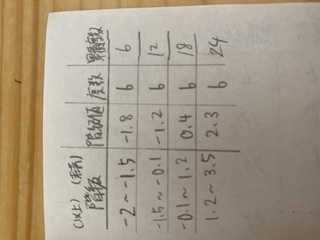 (以上) (未満)
階級 階級値 度数 累積度数
-2~-1.5 -1.8 6 6
-1.5~-0.1 -1.2 6 12
-0.1~1.2 0.4 6 18
1.2~3.5 2.3 6 24